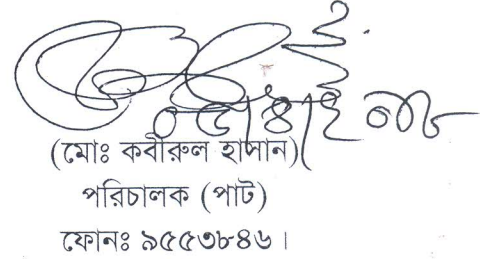 (মোঃ কবীরুল হাসান)
পরিচালক (পাট)
ফোনঃ ৯৫৫৩৮৪৬।